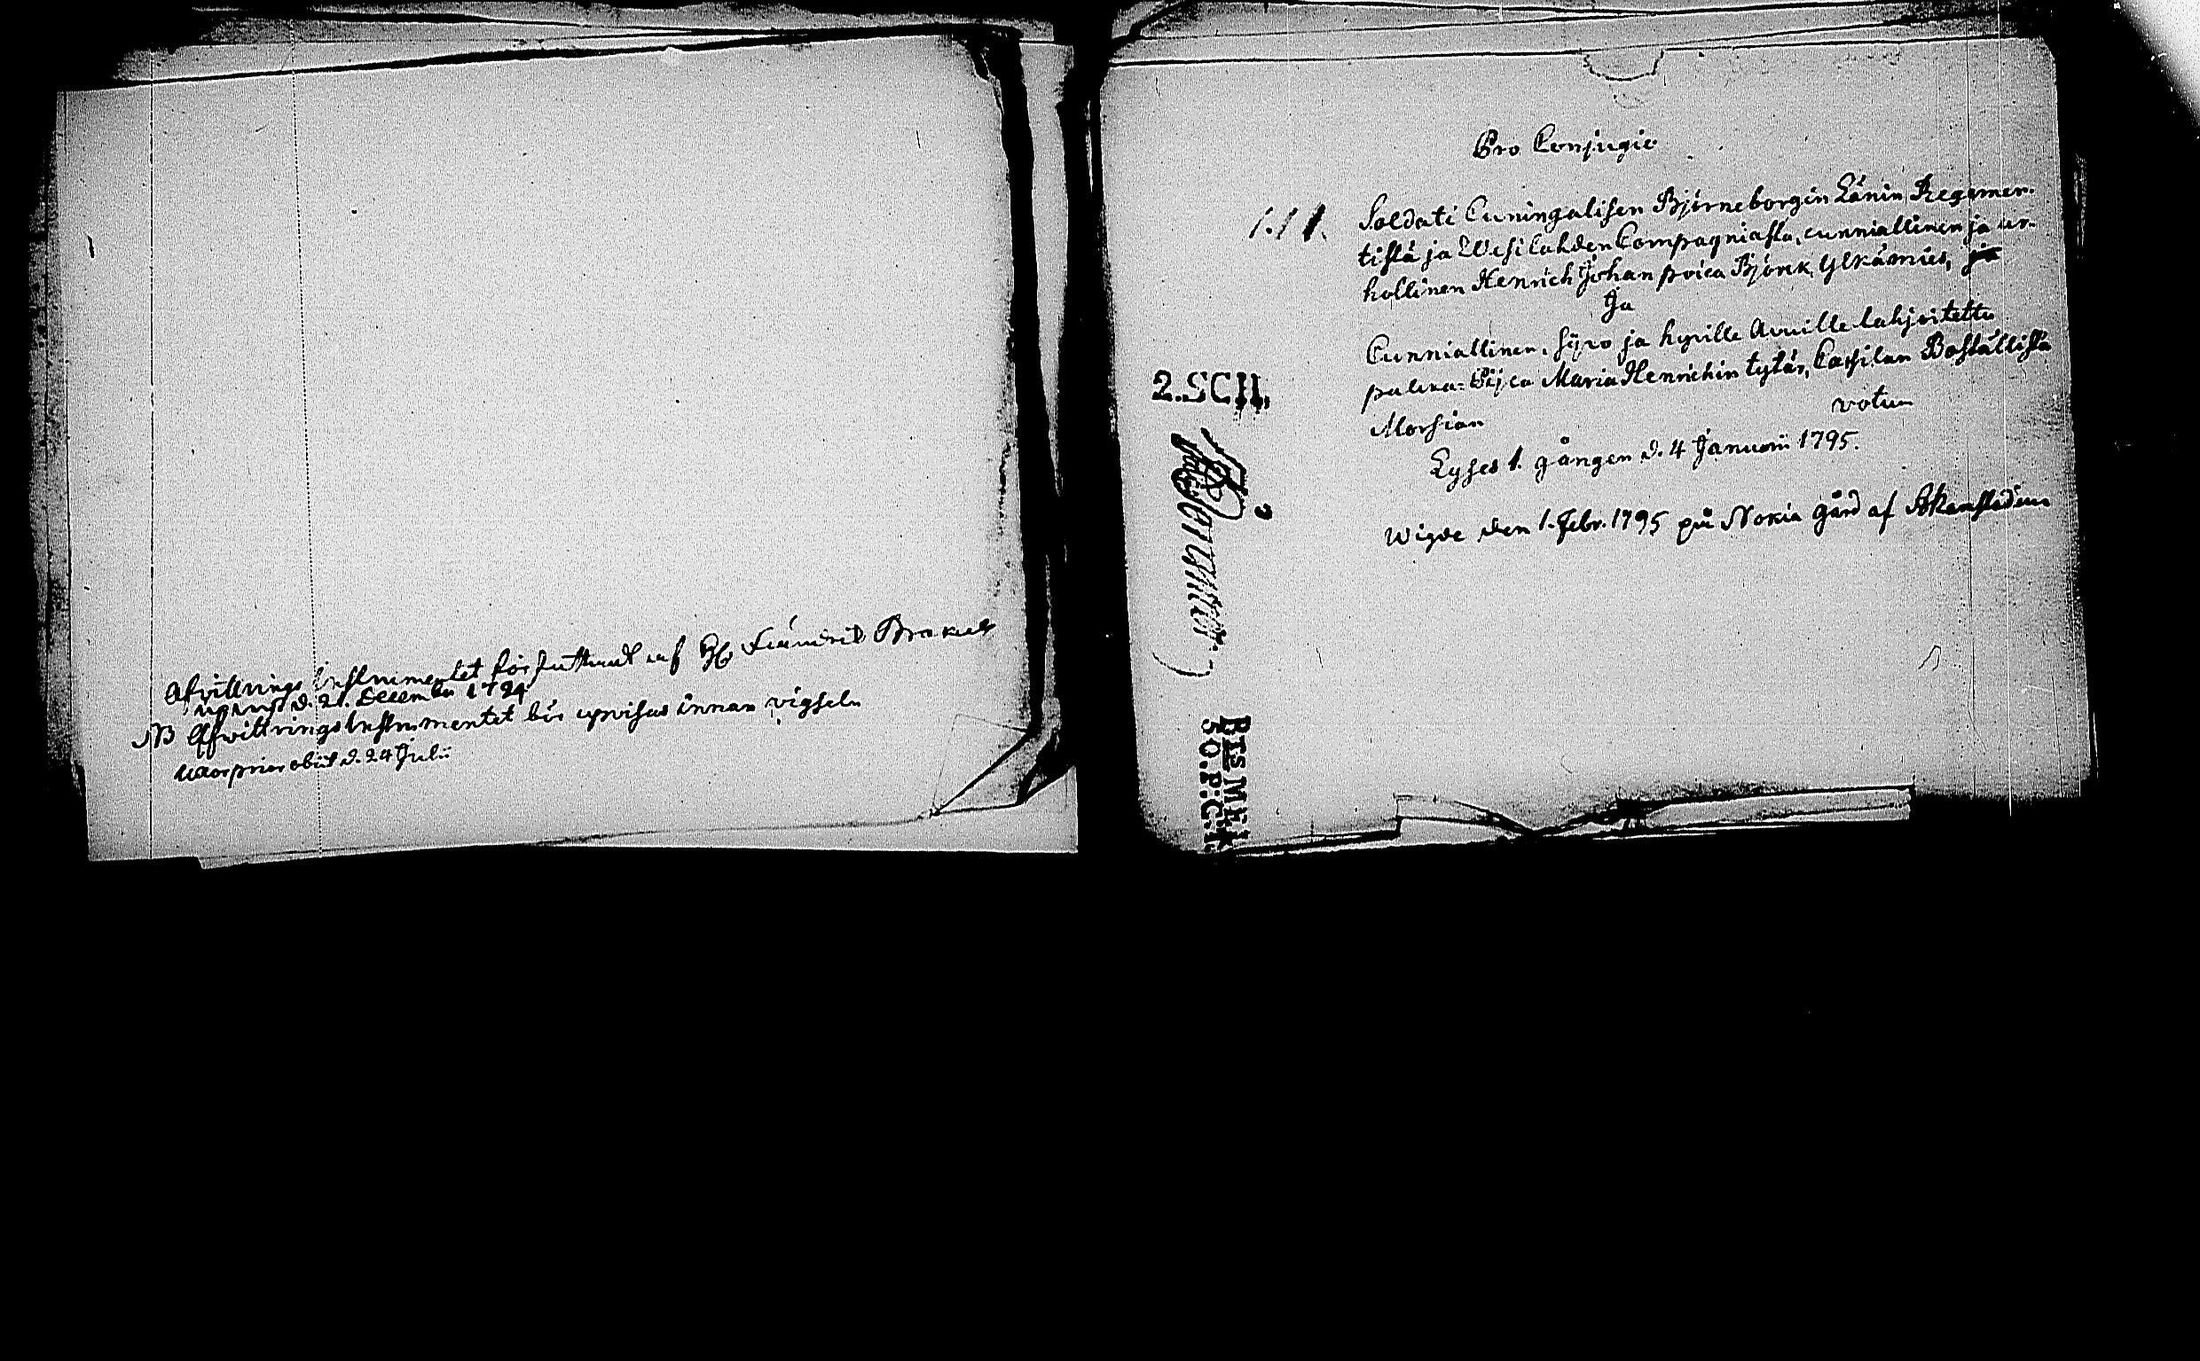 Afvittrings Instrumentet författadt af
d. 21. December 1794
NB Afwittrings Instrumentet bör upvisas innan vigseln
Uxor prior obiit d. 24 Julii
Pro Conjugio
1. / 1.
Soldati Cuningalisen Björneborgin Länin Regemen-
tistä ja Wesilahden Compagniasta, cunniallinen ja ur-
hollinen Henrich Johan poica Björck, Ylkämies, ja
Ja
Cunniallinen, Siyvo ja hyville Avuille lahjoitettu
palcka-Pijca Maria Henrichin tytär, Capilan Boställistä
Morsian
votum
Lyses 1. gången d. 4 Januarii 1795.
Wigde den 1. Febr. 1795 på Nokia gård af
2.SCH,
BIS MEI
50.P.C.